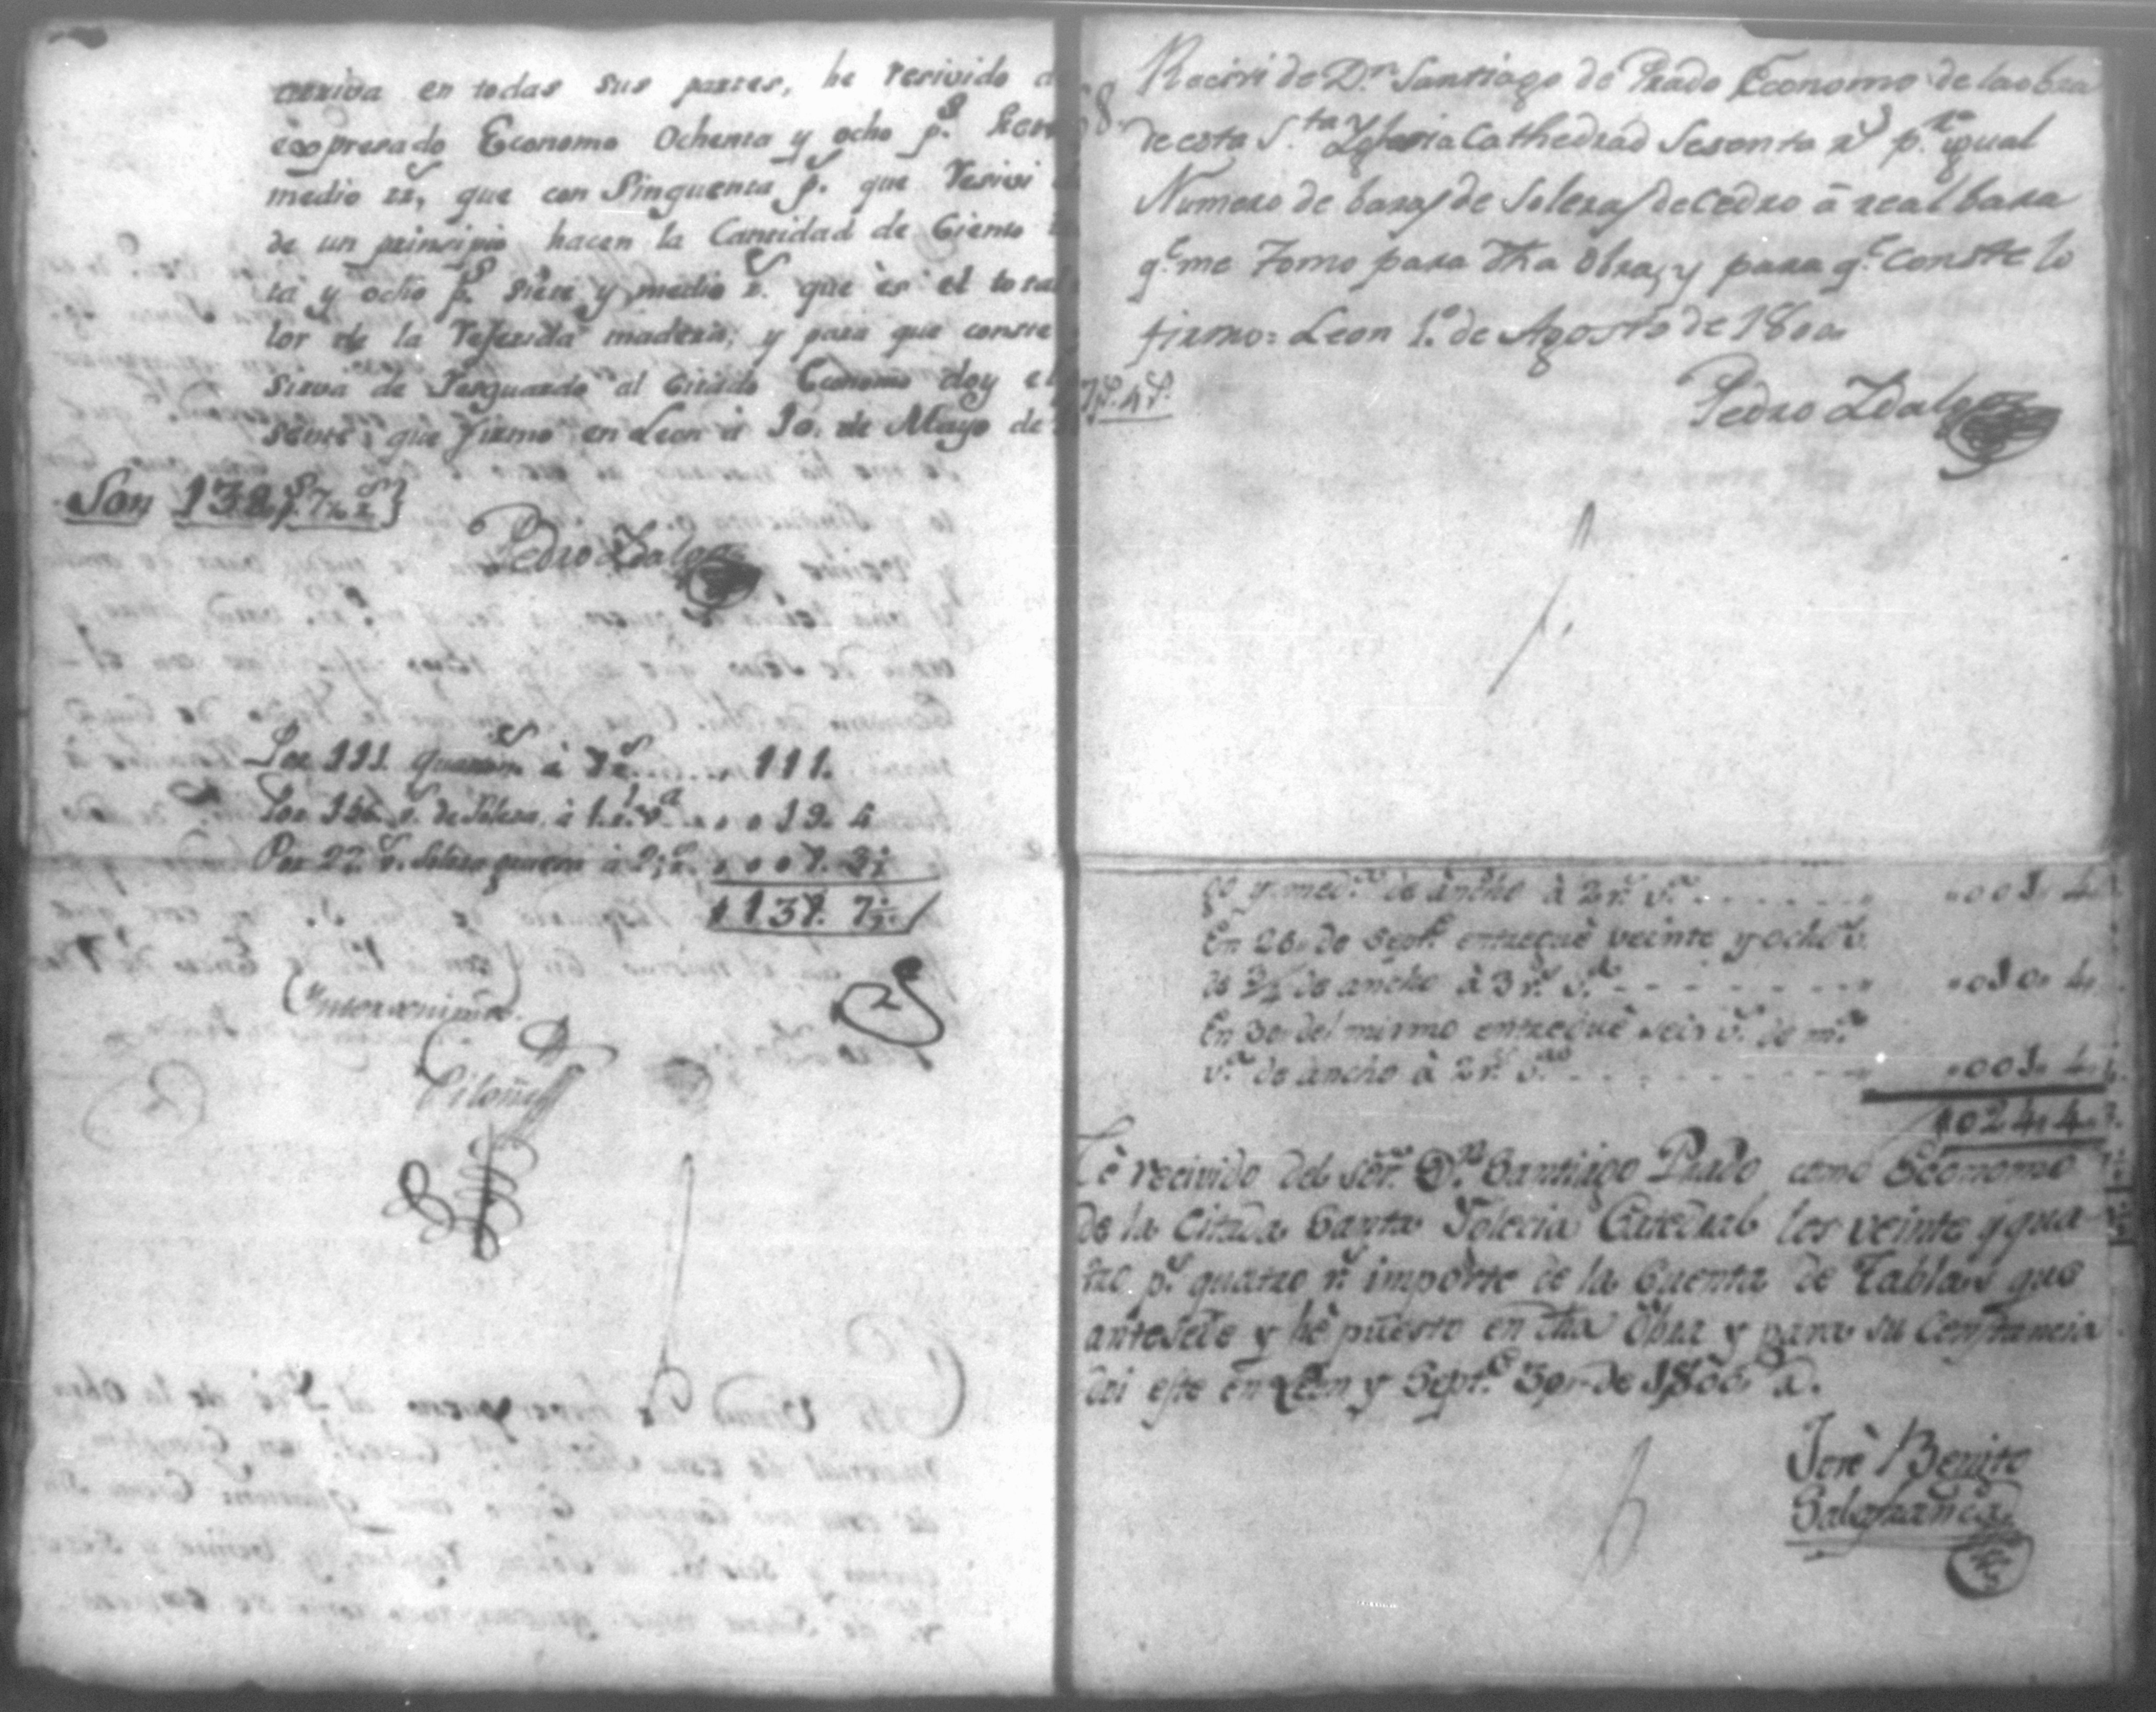 arriva en todas sus partes, he resivido d
expresado Economo Ochenta y ocho p.s
medio rr.s, que con Sinquenta p.s que Resivi
de un prinsipio hacen la Cantidad de Ciento
ta y ocho p.s siete y medio r.s que es el total
lor de la Referida madera; y para que conste
sirva de Resguardo al citado Economo doy el
sente que firmo en Leon à 10. de Mayo de
Son 138 p.s 7½ r.s
Pedro Zdalgo
Por 111 quartons à 1 p.s 111.
Por 156 v.s de Solera, à 1 r.l v.a 19. 4
Por 27 v.s Solera gruesa à 2½ r.s 008. 3½
138. 7½
Intervenimos.
Ciloña
Recivi de D.n Santiago de Prado Economo de la obra
de esta S.ta Yglesia Cathedral Sesenta r.s p.r ygual
Numero de baras de Soleras de Cedro a real bara
q.e me Tomo para dha Obra, y para q.e Conste lo
firmo= Leon 1.o de Agosto de 1800.
7 p.s 4 r.s
Pedro Zdalgo
go y med.a de ancho à 2 r.s v.a 001. 4.
En 26. de Sept.e entreguè veinte y ocho v.s
de ¾ de ancho à 3 r.s v.a 010. 4.
En 30. del mismo entreguè seis v.s de m.a
v.a de ancho à 2 r.s v.a 001. 4.
024. 4.
He recivido del Señor D.n Santiago Prado como Economo
de la Citada Santa Iglecia Catedral los veinte y qua
tro p.s quatro r.s importe de la Cuenta de Tablas que
antesede y hè puesto en dha Obra y para su Constancia
doi este en Leon y Sept.e 30 de 1800 a.s
Josè Benito
Salafranca